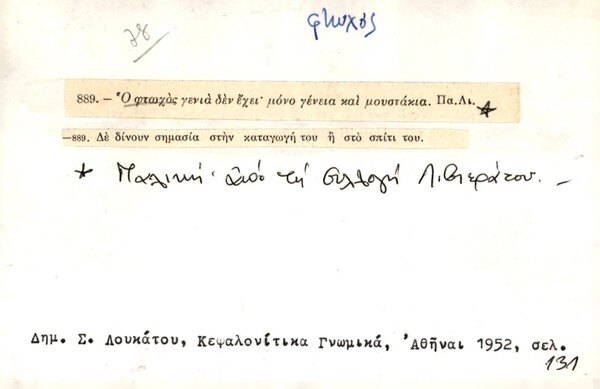 78
φτωχός
889. – Ὁ φτωχὸς γενιὰ δὲν ἔχει· μόνο γένεια καὶ μουστάκια. Πα.Λι. *
—889. Δὲ δίνουν σημασία στὴν καταγωγή του ἢ στὸ σπίτι του.
* Παλική· ἀπό τή συλλογή Λιβιεράτου. –
Δημ. Σ. Λουκάτου, Κεφαλονίτικα Γνωμικά, Ἀθῆναι 1952, σελ.
131